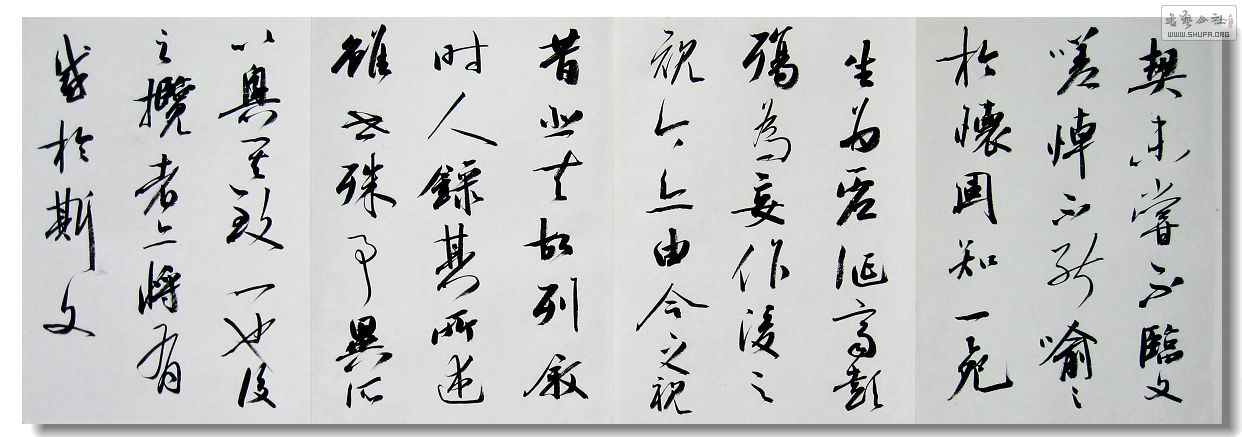 契未嘗不臨文
嗟悼不能喻之
於懷固知一死
生为虛誕齊彭
殤為妄作後之
視今亦由今之視
昔悲夫故列敘
时人錄其所述
雖世殊事異所
以興其致一也後
之攬者亦將有
感於斯文
書藝公社
WWW.SHUFA.ORG